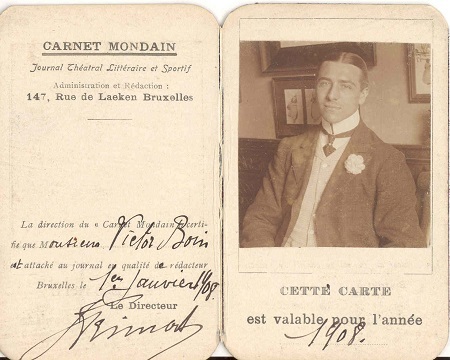 CARNET MONDAIN
Journal Théatral Littéraire et Sportif
Administration et Rédaction :
147, Rue de Laeken Bruxelles
La direction du « Carnet Mondain » certi-
fie que Monsieur Victor Boin
est attaché au journal en qualité de rédacteur
Bruxelles le 1er Janvier 1908.
Le Directeur
CETTE CARTE
est valable pour l'année
1908.